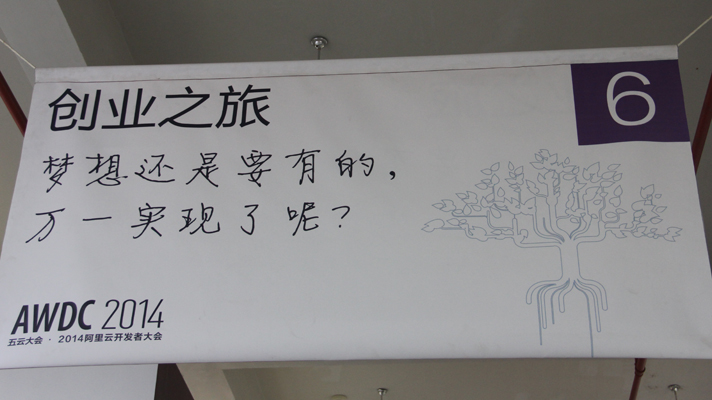 创业之旅
6
梦想还是要有的,
万一实现了呢?
AWDC 2014
五云大会·2014阿里云开发者大会